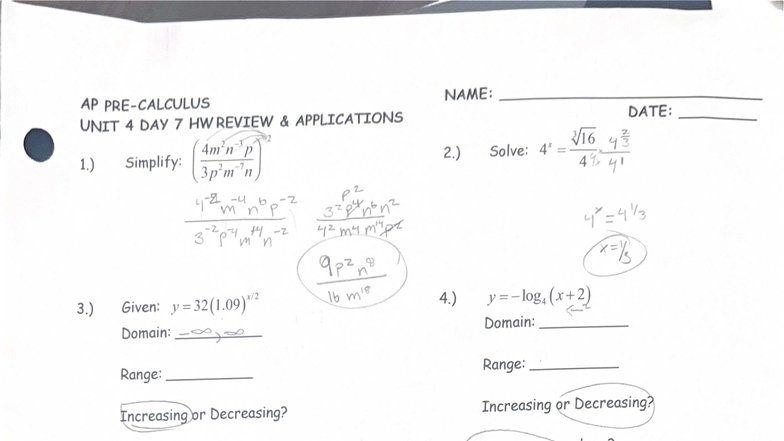 AP PRE-CALCULUS
NAME: ____________
UNIT 4 DAY 7 HW REVIEW & APPLICATIONS
DATE: ____________
1.) Simplify: (4m²n⁻³p / 3p²m⁻⁷n)⁻²
4⁻² m⁻⁴ n⁶ p⁻² / 3⁻² p⁻⁴ m¹⁴ n⁻²
p²
3² p⁴ n⁶ n² / 4² m⁴ m¹⁴ p²
9p² n⁸ / 16 m¹⁸
2.) Solve: 4ˣ = ∛16 / 4
4^(2/3) / 4¹
4ˣ = 4^(1/3)
x = 1/3
3.) Given: y = 32(1.09)^(x/2)
Domain: -∞, ∞
Range: ____________
Increasing or Decreasing?
4.) y = -log₄(x+2)
←2
Domain: ____________
Range: ____________
Increasing or Decreasing?